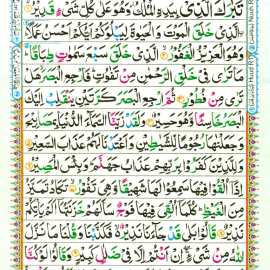 تَبٰرَكَ الَّذِیْ بِیَدِهِ الْمُلْكُ وَهُوَ عَلٰی كُلِّ شَیْءٍ قَدِیْرُ
الَّذِیْ خَلَقَ الْمَوْتَ وَالْحَیٰوةَ لِیَبْلُوَكُمْ اَیُّكُمْ اَحْسَنُ عَمَلًا
وَهُوَ الْعَزِیْزُ الْغَفُوْرُ الَّذِیْ خَلَقَ سَبْعَ سَمٰوٰتٍ طِبَاقًا
مَا تَرٰی فِیْ خَلْقِ الرَّحْمٰنِ مِنْ تَفٰوُتٍ فَارْجِعِ الْبَصَرَ هَلْ
تَرٰی مِنْ فُطُوْرٍ ثُمَّ ارْجِعِ الْبَصَرَ كَرَّتَیْنِ یَنْقَلِبْ اِلَیْكَ
الْبَصَرُ خَاسِئًا وَّهُوَ حَسِیْرٌ وَلَقَدْ زَیَّنَّا السَّمَآءَ الدُّنْیَا بِمَصَابِیْحَ
وَجَعَلْنٰهَا رُجُوْمًا لِّلشَّیٰطِیْنِ وَاَعْتَدْنَا لَهُمْ عَذَابَ السَّعِیْرِ
وَلِلَّذِیْنَ كَفَرُوْا بِرَبِّهِمْ عَذَابُ جَهَنَّمَ وَبِئْسَ الْمَصِیْرُ
اِذَآ اُلْقُوْا فِیْهَا سَمِعُوْا لَهَا شَهِیْقًا وَّهِیَ تَفُوْرُ تَكَادُ تَمَیَّزُ
مِنَ الْغَیْظِ كُلَّمَآ اُلْقِیَ فِیْهَا فَوْجٌ سَاَلَهُمْ خَزَنَتُهَآ اَلَمْ یَاْتِكُمْ
نَذِیْرٌ قَالُوْا بَلٰی قَدْ جَآءَنَا نَذِیْرٌ فَكَذَّبْنَا وَقُلْنَا مَا نَزَّلَ
اللّٰهُ مِنْ شَیْءٍ اِنْ اَنْتُمْ اِلَّا فِیْ ضَلٰلٍ كَبِیْرٍ وَقَالُوْا لَوْ كُنَّا